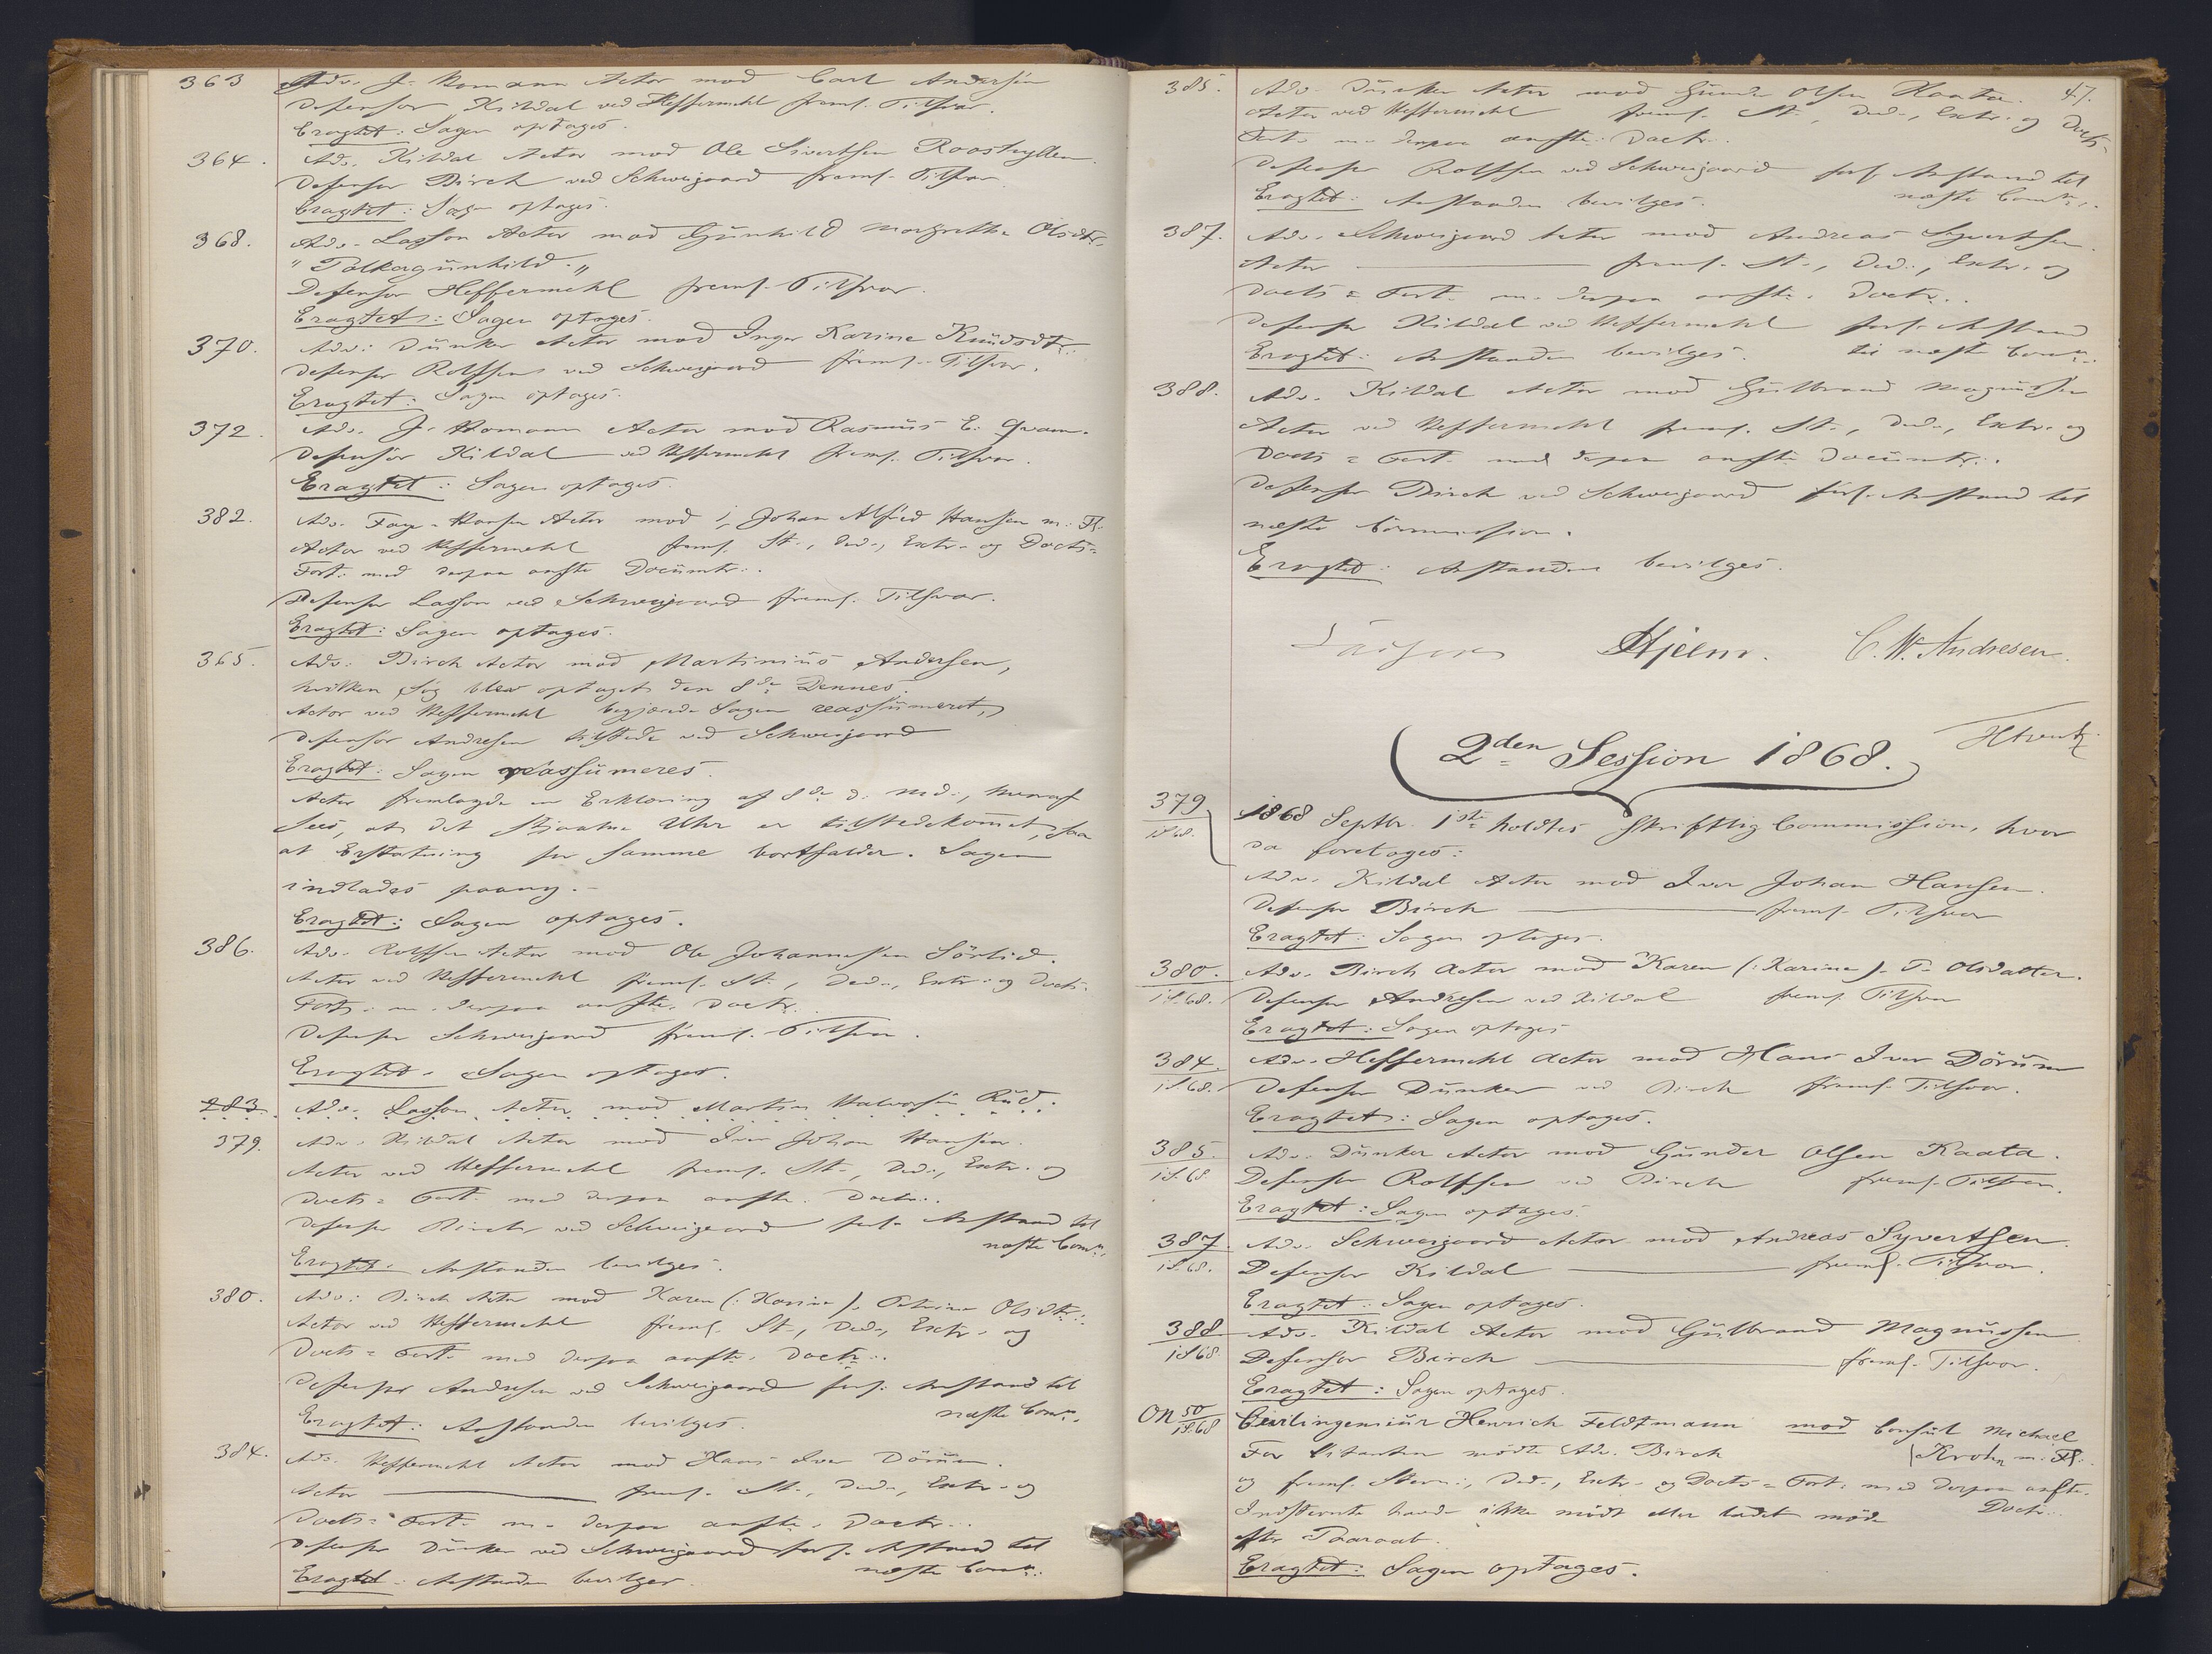 363 Adv. J. Homann Actor mod Carl Andersen
Defensor Kildal ved Heffermehl freml. Tilsvar.
Eragtet: Sagen optages.
364. Adv. Kildal Actor mod Ole Sivertsen Rooshyllen.
Defensor Birch ved Schweigaard freml. Tilsvar
Eragtet: Sagen optages.
368. Adv. Lasson Actor mod Gunhild Margrethe Olsdtr.
"Polkagunhild."
Defensor Heffermehl freml. Tilsvar.
Eragtet: Sagen optages.
370. Adv. Dunker Actor mod Inger Karine Knudsdtr.
Defensor Rolffsen ved Schweigaard freml. Tilsvar.
Eragtet: Sagen optages.
372. Adv. J. Homann Actor mod Rasmus E. Qvam.
Defensor Kildal ved Heffermehl freml. Tilsvar.
Eragtet: Sagen optages.
382. Adv. Faye-Hansen Actor mod 1, Johan Alfred Hansen m. Fl.
Actor ved Heffermehl freml. St., Ded., Extr. og Docts=
Fort. med derpaa anfte Documtr.
Defensor Lasson ved Schweigaard freml. Tilsvar.
Eragtet: Sagen optages.
365. Adv. Birch Actor mod Martinius Andersen,
hvilken Sag blev optaget den 8de Dennes.
Actor ved Heffermehl begjærede Sagen reassumeret,
Defensor Andresen tilstede ved Schweigaard
Eragtet: Sagen reassumeres.
Actor fremlagde en Erklæring af 8de d. Md., hvoraf
sees, at det stjaalne Uhr er tilstedekommet, saa
at Erstatning for samme bortfalder. Sagen
indlades paany.
Eragtet: Sagen optages.
386. Adv. Rolffsen Actor mod Ole Johannessen Sörlid.
Actor ved Heffermehl freml. St., Ded., Extr. og Docts.
Fort. m. derpaa anfte. Doctr.
Defensor Schweigaard freml. Tilsvar.
Eragtet: Sagen optages.
283. Adv. Lasson Actor mod Martin Halvorsen Rud.
379. Adv. Kildal Actor mod Iver Johan Hansen.
Actor ved Heffermehl freml. St., Ded., Extr. og
Docts= Fort. med derpaa anfte. Doctr.
Defensor Birch ved Schweigaard forl. Anstand til
næste Comn.
Eragtet: Anstanden bevilges.
380. Adv. Birch Actor mod Karen (: Karine). Petrine Olsdtr.
Actor ved Heffermehl freml. St., Ded., Extr. og
Docts= Fort. med derpaa anfte. Doctr.
Defensor Andresen ved Schweigaard forl. Anstand til
næste Comn.
Eragtet: Anstanden bevilges.
384. Adv. Heffermehl Actor mod Hans Iver Dörum.
Actor freml. St., Ded., Extr. og
Docts= Fort. m. derpaa anfte. Doctr.
Defensor Dunker ved Schweigaard forl. Anstand til
næste Comn.
Eragtet: Anstanden bevilges.
47.
385. Adv. Dunker Actor mod Gunder Olsen Kaata.
Actor ved Heffermehl freml. St., Ded., Extr. og Docts=
Fort. m. derpaa anfte. Doctr.
Defensor Rolffsen ved Schweigaard forl. Anstand til
næste Comn.
Eragtet: Anstanden bevilges.
387. Adv. Schweigaard Actor mod Andreas Syvertsen.
Actor freml. St., Ded., Extr. og
Docts= Fort. m. derpaa anfte. Doctr.
Defensor Kildal ved Heffermehl forl. Anstand
til næste Comn.
Eragtet: Anstanden bevilges.
388. Adv. Kildal Actor mod Gulbrand Magnussen
Actor ved Heffermehl freml. St., Ded., Extr. og
Docts= Fort. med derpaa anfte Documtr.
Defensor Birch ved Schweigaard forl. Anstand til
næste Commission.
Eragtet: Anstanden bevilges.
Hjelm. C. W. Andresen.
2den Session 1868.
379 1868 Septbr. 1ste holdtes skriftlig Commission, hvor
1S.68. da foretoges:
Adv. Kildal Actor mod Iver Johan Hansen.
Defensor Birch freml. Tilsvar
Eragtet: Sagen optages.
380. Adv. Birch Actor mod Karen (: Karine). P. Olsdatter.
1S.68. Defensor Andresen ved Kildal freml. Tilsvar
Eragtet: Sagen optages
384. Adv. Heffermehl Actor mod Hans Iver Dörum
1S.68. Defensor Dunker ved Birch freml. Tilsvar.
Eragtet: Sagen optages.
385. Adv. Dunker Actor mod Gunder Olsen Kaata.
1S.68 Defensor Rolffsen ved Birch freml. Tilsvar.
Eragtet: Sagen optages.
387. Adv. Schweigaard Actor mod Andreas Syvertsen.
1S.68. Defensor Kildal freml. Tilsvar.
Eragtet: Sagen optages.
388 Adv. Kildal Actor mod Gulbrand Magnussen
1S68. Defensor Birch freml. Tilsvar.
Eragtet: Sagen optages.
ON 50 Civilingeniör Henrich Feldtmann mod Consul Michael
1S.68 For Citanten mödte Adv. Birch Krohn m. Fl.
og freml. Stevn., Ded., Extr. og Docts= Fort. med derpaa anfte.
Doctr.
Indstevnte havde ikke mödt eller ladet möde
efter Paaraab.
Eragtet: Sagen optages.